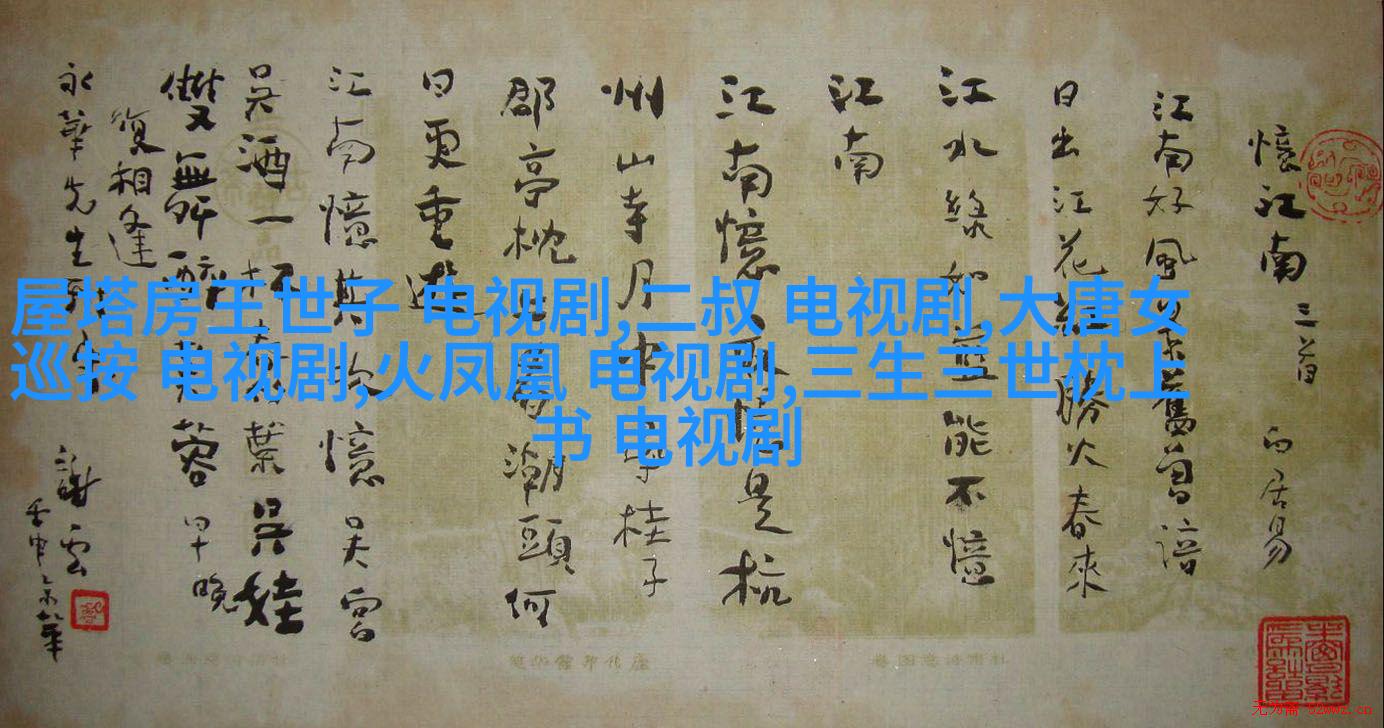 屋塔房王世子 电视剧,二叔 电视剧,大唐女
巡按 电视剧,火凤凰 电视剧,三生三世枕上
书 电视剧
憶江南 三首 白居易
江南好風景舊曾諳
日出江花紅勝火春來
江水綠如藍能不憶
江南
江南憶最憶是杭
州山寺月中尋桂子
郡亭枕上看潮頭何
日更重遊
江南憶其次憶吳宮
吳酒一杯春竹葉吳娃
雙舞醉芙蓉早晚
復相逢
永華先生
謝云
壬申京華
无为斋 52wwz.cn